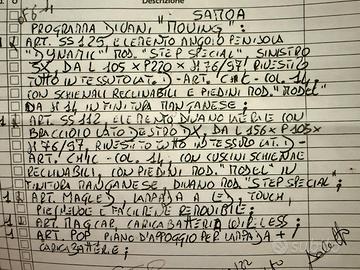 Descrizione
SAMOA
PROGRAMMA DIVANI "MOVING":
1 ART. SS125, ELEMENTO ANGOLO PENISOLA
"DYNAMIC" MOD. "STEP SPECIAL" SINISTRO
SX, DA L 105 x P220 x H 76/97, RIVESTITO
TUTTO IN TESSUTO CAT. D - ART. CHIC - COL. 14,
CON SCHIENALI RECLINABILI E PIEDINI MOD. "MODEL"
DA H 14 IN TINTURA MANGANESE;
1 ART. SS 112, ELEMENTO DIVANO LATERALE CON
BRACCIOLO LATO DESTRO DX, DA L 156 x P 105 x
H 76/97, RIVESTITO TUTTO IN TESSUTO CAT. D -
ART. CHIC - COL. 14, CON CUSCINI SCHIENALE
RECLINABILI, CON PIEDINI MOD. "MODEL" IN
TINTURA MANGANESE, DIVANO MOD "STEP SPECIAL";
1 ART. MAGLED, LAMPADA A LED, TOUCH,
PIEGHEVOLE E FACILMENTE REMOVIBILE;
1 ART. MAGCAR, CARICABATTERIA WIRELESS;
1 ART. POP PIANO D'APPOGGIO PER LAMPADA +
CARICABATTERIE;
subito